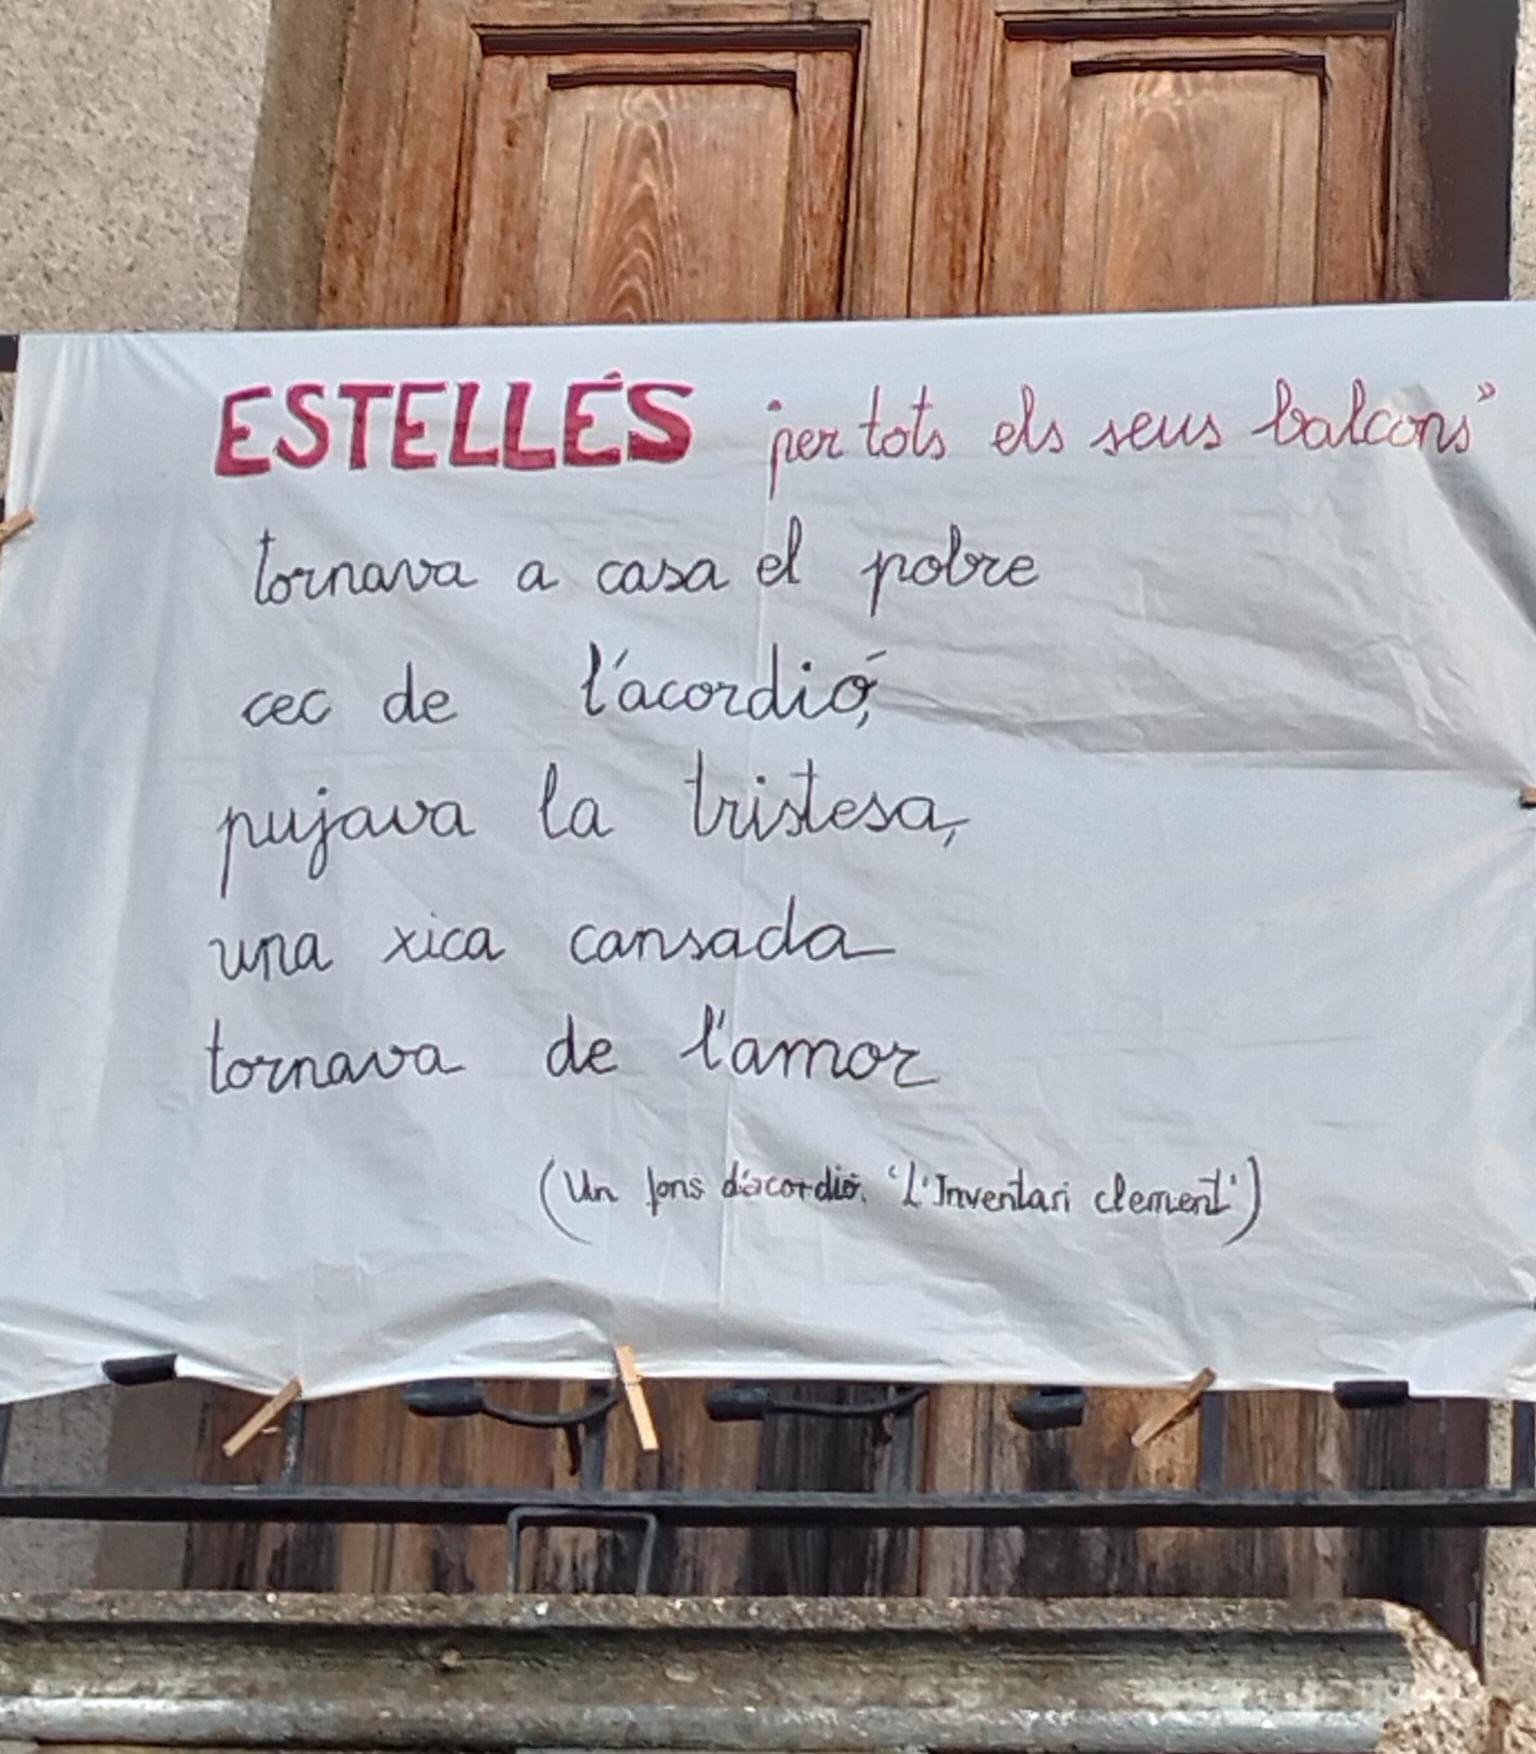 ESTELLÉS "per tots els seus balcons"
tornava a casa el pobre
cec de l'acordió,
pujava la tristesa,
una xica cansada
tornava de l'amor
(Un fons d'acordió. 'L'Inventari clement')